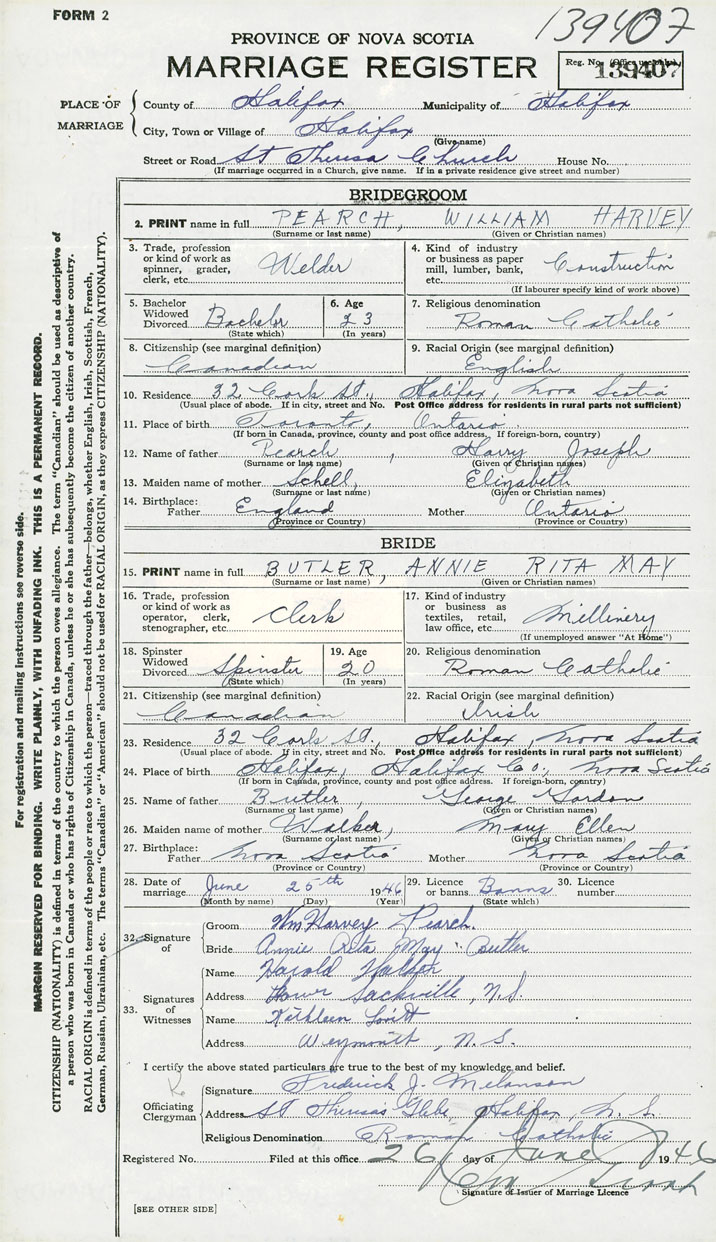 FORM 2
139407
PROVINCE OF NOVA SCOTIA
MARRIAGE REGISTER
Reg. No. (Office use only)
139407
PLACE OF MARRIAGE
County of Halifax Municipality of Halifax
City, Town or Village of Halifax
(Give name)
Street or Road St Theresa Church House No.
(If marriage occurred in a Church, give name. If in a private residence give street and number)
BRIDEGROOM
2. PRINT name in full PEARCH, WILLIAM HARVEY
(Surname or last name) (Given or Christian names)
3. Trade, profession or kind of work as spinner, grader, clerk, etc. Welder
4. Kind of industry or business as paper mill, lumber, bank, etc. Construction
(If labourer specify kind of work above)
5. Bachelor Widowed Divorced Bachelor
(State which)
6. Age 23
(In years)
7. Religious denomination Roman Catholic
8. Citizenship (see marginal definition) Canadian
9. Racial Origin (see marginal definition) English
10. Residence 32 Cork St., Halifax, Nova Scotia
(Usual place of abode. If in city, street and No. Post Office address for residents in rural parts not sufficient)
11. Place of birth Toronto, Ontario
(If born in Canada, province, county and post office address. If foreign-born, country)
12. Name of father Pearch, Harry Joseph
(Surname or last name) (Given or Christian names)
13. Maiden name of mother Schell, Elizabeth
(Surname or last name) (Given or Christian names)
14. Birthplace: Father England Mother Ontario
(Province or Country) (Province or Country)
BRIDE
15. PRINT name in full BUTLER, ANNIE RITA MAY
(Surname or last name) (Given or Christian names)
16. Trade, profession or kind of work as operator, clerk, stenographer, etc. Clerk
17. Kind of industry or business as textiles, retail, law office, etc. Millinery
(If unemployed answer "At Home")
18. Spinster Widowed Divorced Spinster
(State which)
19. Age 20
(In years)
20. Religious denomination Roman Catholic
21. Citizenship (see marginal definition) Canadian
22. Racial Origin (see marginal definition) Irish
23. Residence 32 Cork St., Halifax, Nova Scotia
(Usual place of abode. If in city, street and No. Post Office address for residents in rural parts not sufficient)
24. Place of birth Halifax, Halifax Co., Nova Scotia
(If born in Canada, province, county and post office address. If foreign-born, country)
25. Name of father Butler, George Gordon
(Surname or last name) (Given or Christian names)
26. Maiden name of mother Walker, Mary Ellen
(Surname or last name) (Given or Christian names)
27. Birthplace: Father Nova Scotia Mother Nova Scotia
(Province or Country) (Province or Country)
28. Date of marriage June 25th 1946
(Month by name) (Day) (Year)
29. Licence or banns Banns
(State which)
30. Licence number
32. Signature of
Groom Wm Harvey Pearch.
Bride Annie Rita May Butler
33. Signatures of Witnesses
Name Harold
Address Lower Sackville, N.S.
Name Kathleen
Address Weymouth, N.S.
I certify the above stated particulars are true to the best of my knowledge and belief.
Officiating Clergyman
Signature Frederick J. Melanson
Address St Theresa's Glebe, Halifax, N.S.
Religious Denomination Roman Catholic
Registered No. Filed at this office 26 day of June 1946
Signature of Issuer of Marriage Licence
[SEE OTHER SIDE]
For registration and mailing instructions see reverse side.
MARGIN RESERVED FOR BINDING. WRITE PLAINLY, WITH UNFADING INK. THIS IS A PERMANENT RECORD.
CITIZENSHIP (NATIONALITY) is defined in terms of the country to which the person owes allegiance. The term "Canadian" should be used as descriptive of
a person who was born in Canada or who has rights of Citizenship in Canada, unless he or she has subsequently become the citizen of another country.
RACIAL ORIGIN is defined in terms of the people or race to which the person—traced through the father—belongs, whether English, Irish, Scottish, French,
German, Russian, Ukrainian, etc. The terms "Canadian" or "American" should not be used for RACIAL ORIGIN, as they express CITIZENSHIP (NATIONALITY).